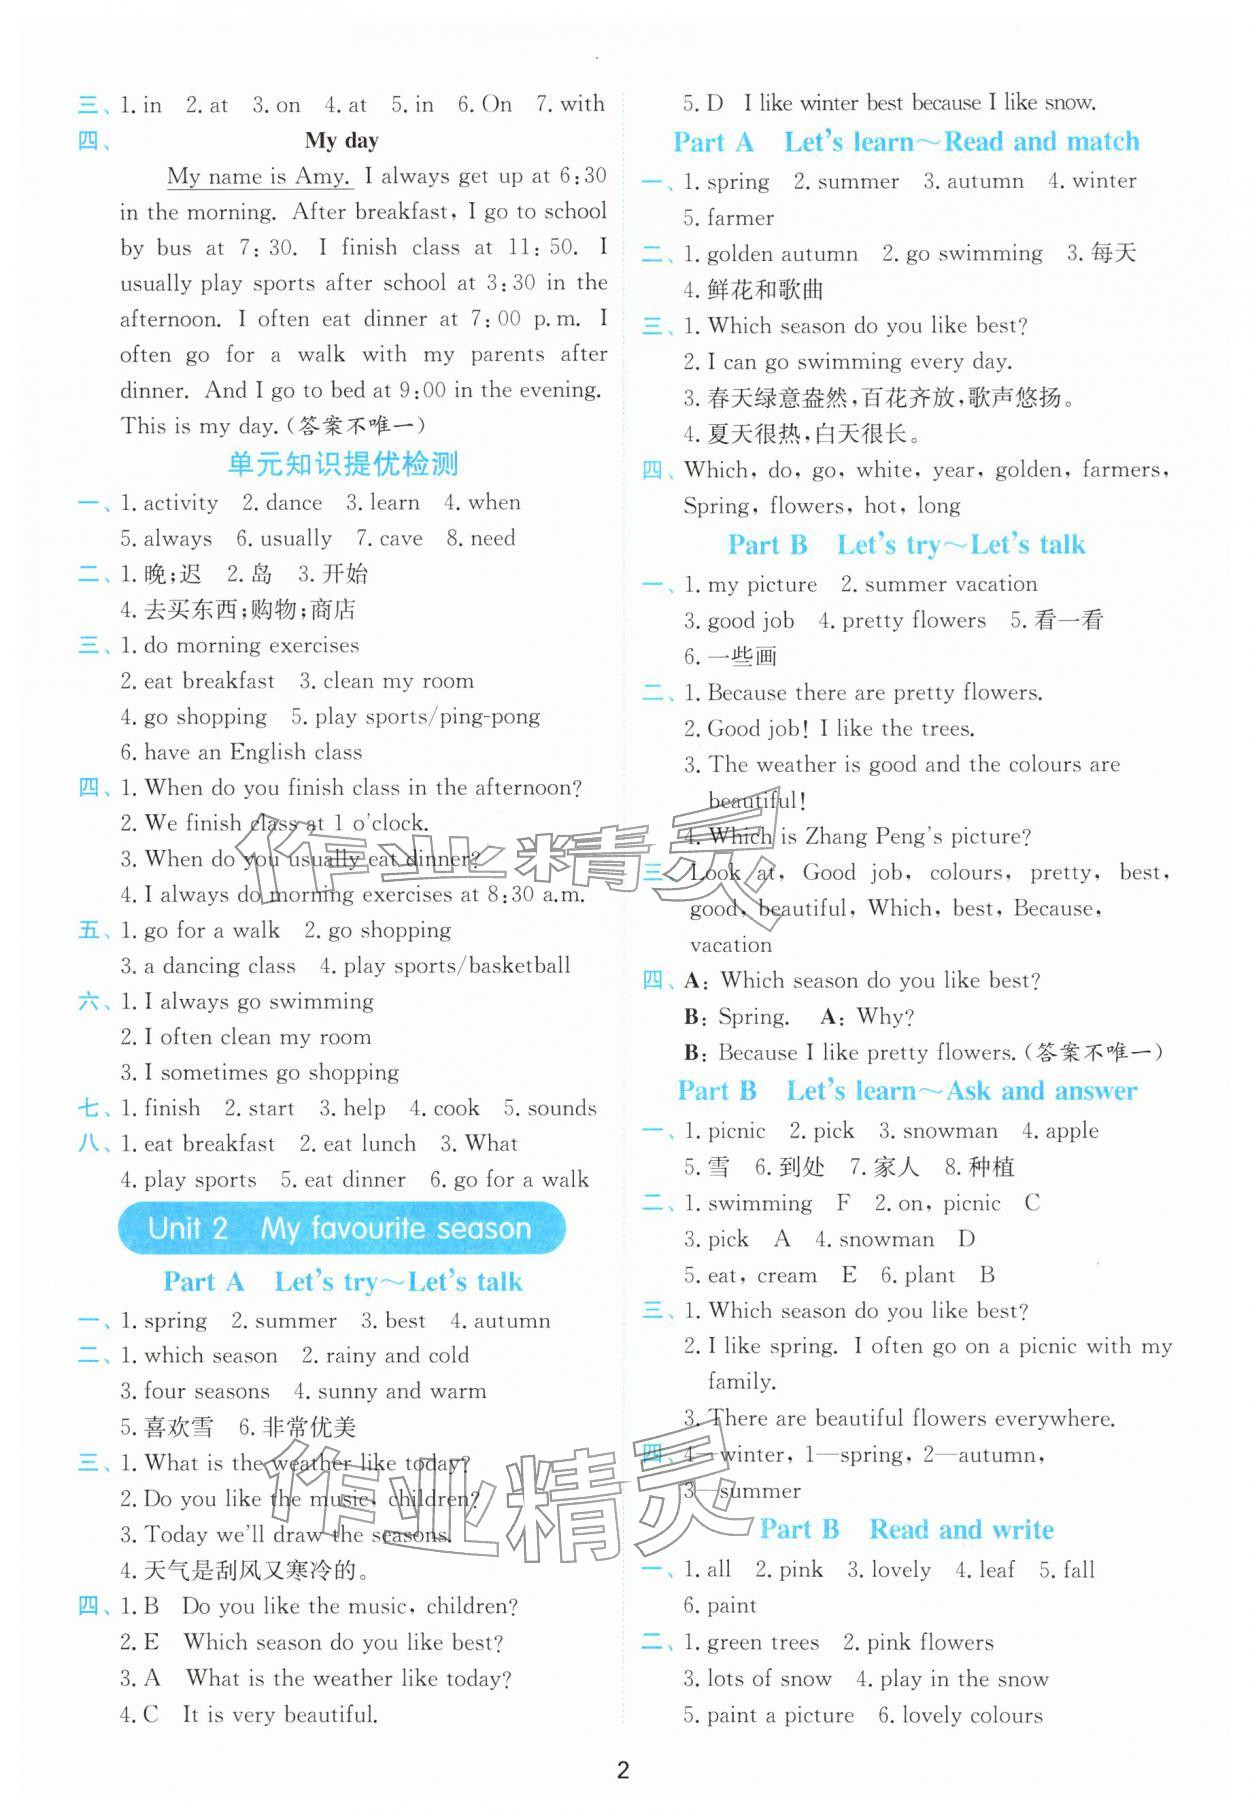 三、1. in 2. at 3. on 4. at 5. in 6. On 7. with
四、 My day
My name is Amy. I always get up at 6:30
in the morning. After breakfast, I go to school
by bus at 7:30. I finish class at 11:50. I
usually play sports after school at 3:30 in the
afternoon. I often eat dinner at 7:00 p.m. I
often go for a walk with my parents after
dinner. And I go to bed at 9:00 in the evening.
This is my day.(答案不唯一)
单元知识提优检测
一、1. activity 2. dance 3. learn 4. when
5. always 6. usually 7. cave 8. need
二、1. 晚;迟 2. 岛 3. 开始
4. 去买东西;购物;商店
三、1. do morning exercises
2. eat breakfast 3. clean my room
4. go shopping 5. play sports/ping-pong
6. have an English class
四、1. When do you finish class in the afternoon?
2. We finish class at 1 o'clock.
3. When do you usually eat dinner?
4. I always do morning exercises at 8:30 a.m.
五、1. go for a walk 2. go shopping
3. a dancing class 4. play sports/basketball
六、1. I always go swimming
2. I often clean my room
3. I sometimes go shopping
七、1. finish 2. start 3. help 4. cook 5. sounds
八、1. eat breakfast 2. eat lunch 3. What
4. play sports 5. eat dinner 6. go for a walk
Unit 2 My favourite season
Part A Let's try~Let's talk
一、1. spring 2. summer 3. best 4. autumn
二、1. which season 2. rainy and cold
3. four seasons 4. sunny and warm
5. 喜欢雪 6. 非常优美
三、1. What is the weather like today?
2. Do you like the music, children?
3. Today we'll draw the seasons.
4. 天气是刮风又寒冷的。
四、1. B Do you like the music, children?
2. E Which season do you like best?
3. A What is the weather like today?
4. C It is very beautiful.
5. D I like winter best because I like snow.
Part A Let's learn~Read and match
一、1. spring 2. summer 3. autumn 4. winter
5. farmer
二、1. golden autumn 2. go swimming 3. 每天
4. 鲜花和歌曲
三、1. Which season do you like best?
2. I can go swimming every day.
3. 春天绿意盎然,百花齐放,歌声悠扬。
4. 夏天很热,白天很长。
四、Which, do, go, white, year, golden, farmers,
Spring, flowers, hot, long
Part B Let's try~Let's talk
一、1. my picture 2. summer vacation
3. good job 4. pretty flowers 5. 看一看
6. 一些画
二、1. Because there are pretty flowers.
2. Good job! I like the trees.
3. The weather is good and the colours are
beautiful!
4. Which is Zhang Peng's picture?
三、Look at, Good job, colours, pretty, best,
good, beautiful, Which, best, Because,
vacation
四、A: Which season do you like best?
B: Spring. A: Why?
B: Because I like pretty flowers.(答案不唯一)
Part B Let's learn~Ask and answer
一、1. picnic 2. pick 3. snowman 4. apple
5. 雪 6. 到处 7. 家人 8. 种植
二、1. swimming F 2. on, picnic C
3. pick A 4. snowman D
5. eat, cream E 6. plant B
三、1. Which season do you like best?
2. I like spring. I often go on a picnic with my
family.
3. There are beautiful flowers everywhere.
四、4—winter, 1—spring, 2—autumn,
3—summer
Part B Read and write
一、1. all 2. pink 3. lovely 4. leaf 5. fall
6. paint
二、1. green trees 2. pink flowers
3. lots of snow 4. play in the snow
5. paint a picture 6. lovely colours
2
作业精灵
作业精灵